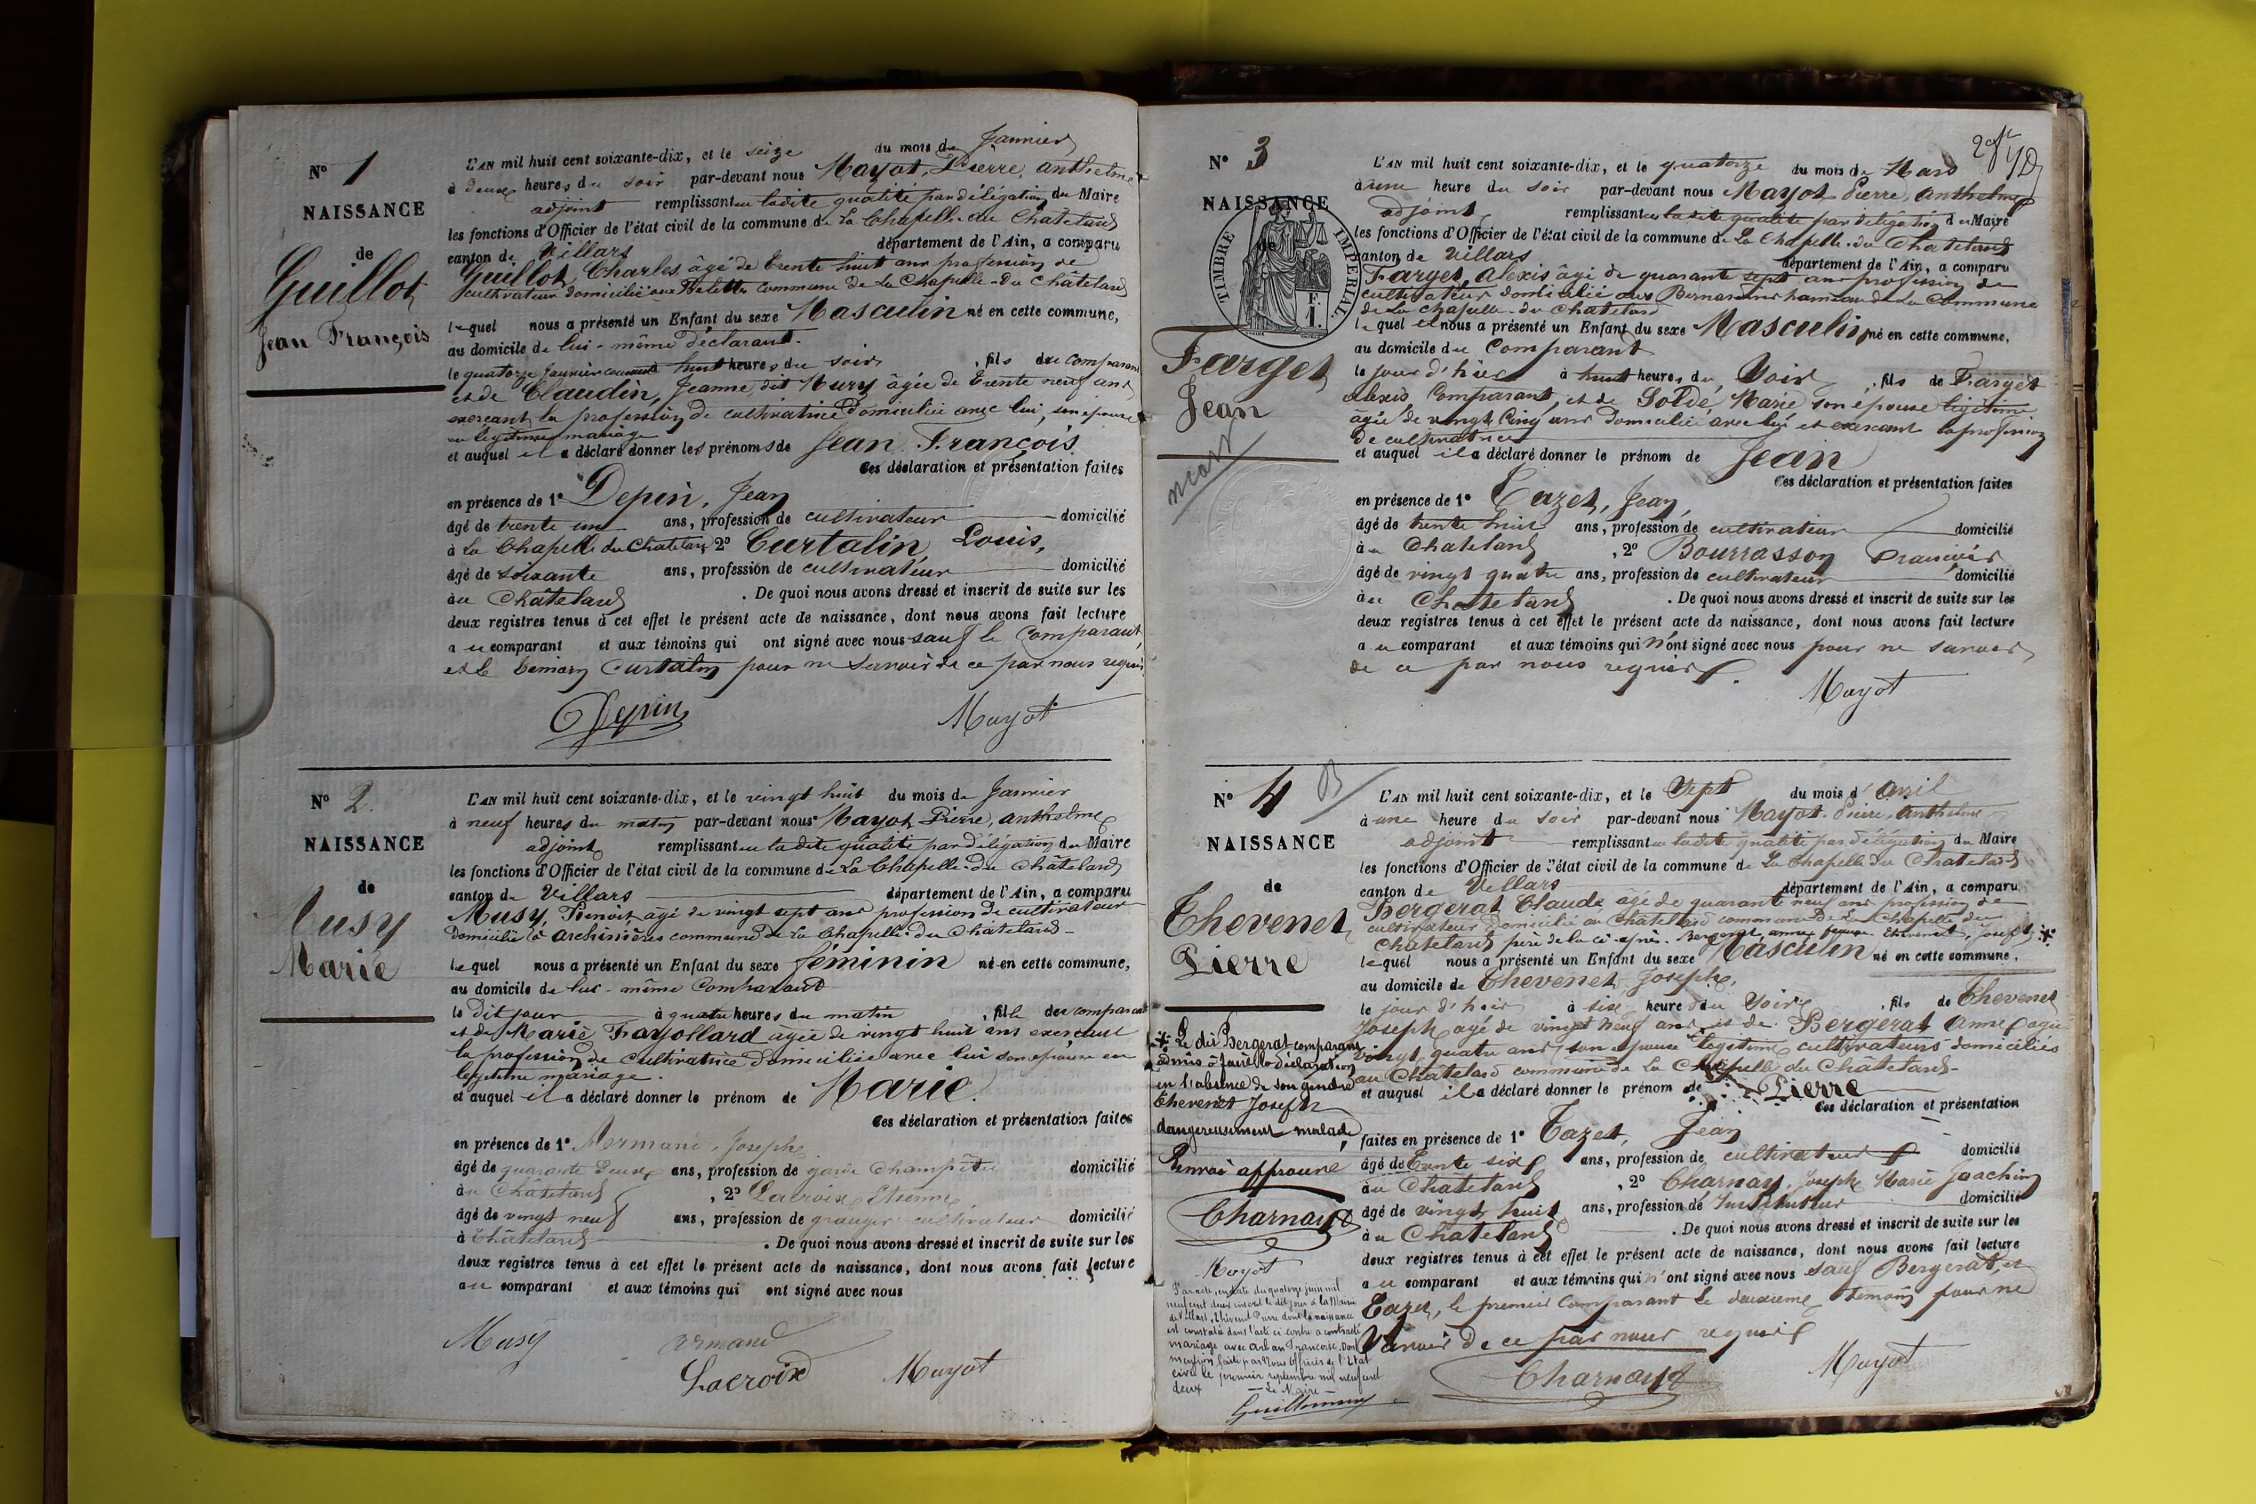 N° 1
NAISSANCE
de
Guillot
Jean François
L'AN mil huit cent soixante-dix, et le seize du mois de Janvier
à deux heures du soir par-devant nous Mayot, Pierre, anthelme
adjoint remplissant en ladite qualité par délégation du Maire
les fonctions d'Officier de l'état civil de la commune de La Chapelle-du Châtelard
canton de Villars département de l'Ain, a comparu
Guillot, Charles, âgé de trente huit ans profession de
cultivateur domicilié aux commune de La Chapelle-du Châtelard
lequel nous a présenté un Enfant du sexe Masculin né en cette commune,
au domicile de lui-même déclarant.
le quatorze Janvier courant à huit heures du soir, fils du comparant
et de Claudin, Jeanne, dit Mury âgée de trente neuf ans
exerçant la profession de cultivatrice domiciliée avec lui, son épouse
en légitime mariage
et auquel il a déclaré donner les prénoms de Jean François.
Ces déclaration et présentation faites
en présence de 1° Depin, Jean
âgé de trente un ans, profession de cultivateur domicilié
à La Chapelle du Chatelard, 2° Curtalin, Louis,
âgé de soixante ans, profession de cultivateur domicilié
au Châtelard . De quoi nous avons dressé et inscrit de suite sur les
deux registres tenus à cet effet le présent acte de naissance, dont nous avons fait lecture
au comparant et aux témoins qui ont signé avec nous sauf le comparant
et le témoin Curtalin pour ne savoir de ce par nous requis
Depin Mayot
N° 2.
NAISSANCE
de
Musy
Marie
L'AN mil huit cent soixante-dix, et le vingt huit du mois de Janvier
à neuf heures du matin par-devant nous Mayot, Pierre, anthelme
adjoint remplissant en ladite qualité par délégation du Maire
les fonctions d'Officier de l'état civil de la commune de La Chapelle-du Châtelard
canton de Villars département de l'Ain, a comparu
Musy, Benoit, âgé de vingt sept ans profession de cultivateur
domicilié à commune de La Chapelle-du Châtelard
lequel nous a présenté un Enfant du sexe féminin né en cette commune,
au domicile de lui-même comparant
le dit jour à quatre heures du matin, fille du comparant
et de Marie Fayollard âgée de vingt huit ans exerçant
la profession de cultivatrice domiciliée avec lui son épouse en
légitime mariage.
et auquel il a déclaré donner le prénom de Marie.
Ces déclaration et présentation faites
en présence de 1° Joseph
âgé de quarante deux ans, profession de garde champêtre domicilié
au Châtelard, 2° Lacroix, Etienne
âgé de vingt neuf ans, profession de granger cultivateur domicilié
à Châtelard . De quoi nous avons dressé et inscrit de suite sur les
deux registres tenus à cet effet le présent acte de naissance, dont nous avons fait lecture
au comparant et aux témoins qui ont signé avec nous
Musy
Lacroix Mayot
N° 3
NAISSANCE
de
TIMBRE IMPERIAL
F.
1.
Farget
Jean
mort
L'AN mil huit cent soixante-dix, et le quatorze du mois de Mars
à une heure du soir par-devant nous Mayot Pierre, anthelme
adjoint remplissant en ladite qualité par délégation du Maire
les fonctions d'Officier de l'état civil de la commune de La Chapelle-du Châtelard
canton de Villars département de l'Ain, a comparu
Farget, Alexis âgé de quarante sept ans profession de
cultivateur domicilié aux Bernardins hameau de la commune
de La Chapelle-du Châtelard
lequel nous a présenté un Enfant du sexe Masculin né en cette commune,
au domicile du comparant
le jour d'hier à huit heures du Soir, fils de Farget
alexis Comparant, et de Marie son épouse légitime
âgée de vingt cinq ans domiciliée avec lui et exercant la profession
de cultivatrice
et auquel il a déclaré donner le prénom de Jean
Ces déclaration et présentation faites
en présence de 1° Cazet, Jean,
âgé de trente huit ans, profession de cultivateur domicilié
au Chatelard, 2° Bourrasson François
âgé de vingt quatre ans, profession de cultivateur domicilié
au Chatelard . De quoi nous avons dressé et inscrit de suite sur les
deux registres tenus à cet effet le présent acte de naissance, dont nous avons fait lecture
au comparant et aux témoins qui n'ont signé avec nous pour ne savoir
de ce par nous requis.
Mayot
N° 4 B
NAISSANCE
de
Thevenet
Pierre
L'AN mil huit cent soixante-dix, et le Sept du mois d'avril
à une heure du soir par-devant nous Mayot, Pierre, anthelme
adjoint remplissant en ladite qualité par délégation du Maire
les fonctions d'Officier de l'état civil de la commune de La Chapelle du Chatelard
canton de Villars département de l'Ain, a comparu
Bergerat Claude âgé de quarante neuf ans profession de
cultivateur domicilié au Châtelard commune de La Chapelle du
Châtelard père de la ci-après. Bergerat, anne femme Thevenet, Joseph *
lequel nous a présenté un Enfant du sexe Masculin né en cette commune,
au domicile de Thevenet Joseph,
le jour d'hier à six heures du Soir, fils de Thevenet
Joseph âgé de vingt neuf ans et de Bergerat anne âgée
vingt quatre ans son épouse légitime cultivateurs domiciliés
au Châtelard commune de La Chapelle du Châtelard-
et auquel il a déclaré donner le prénom de Pierre
Ces déclaration et présentation
faites en présence de 1° Cazet, Jean
âgé de trente six ans, profession de cultivateur domicilié
au Chatelard, 2° Charnay, Joseph Marie Joachim
âgé de vingt huit ans, profession de Instituteur domicilié
au Chatelard . De quoi nous avons dressé et inscrit de suite sur les
deux registres tenus à cet effet le présent acte de naissance, dont nous avons fait lecture
au comparant et aux témoins qui n'ont signé avec nous sauf Bergerat, et
Cazet, le premier comparant le deuxième témoin pour ne
savoir de ce par nous requis
Charnay Mayot
* Le dit Bergerat comparant
admis à faire la déclaration
en l'absence de son gendre
Thevenet Joseph
dangereusement malade
Renvoi approuvé
Charnay
Mayot
Par acte, en date du quatorze juin mil
neuf cent deux inscrit le dit jour à la Mairie
de Villars, Thévenet Pierre dont la naissance
est constatée dans l'acte ci contre a contracté
mariage avec Françoise. Dont
mention faite par Nous Officier de l'Etat
civil le premier septembre mil neuf cent
deux — Le Maire —